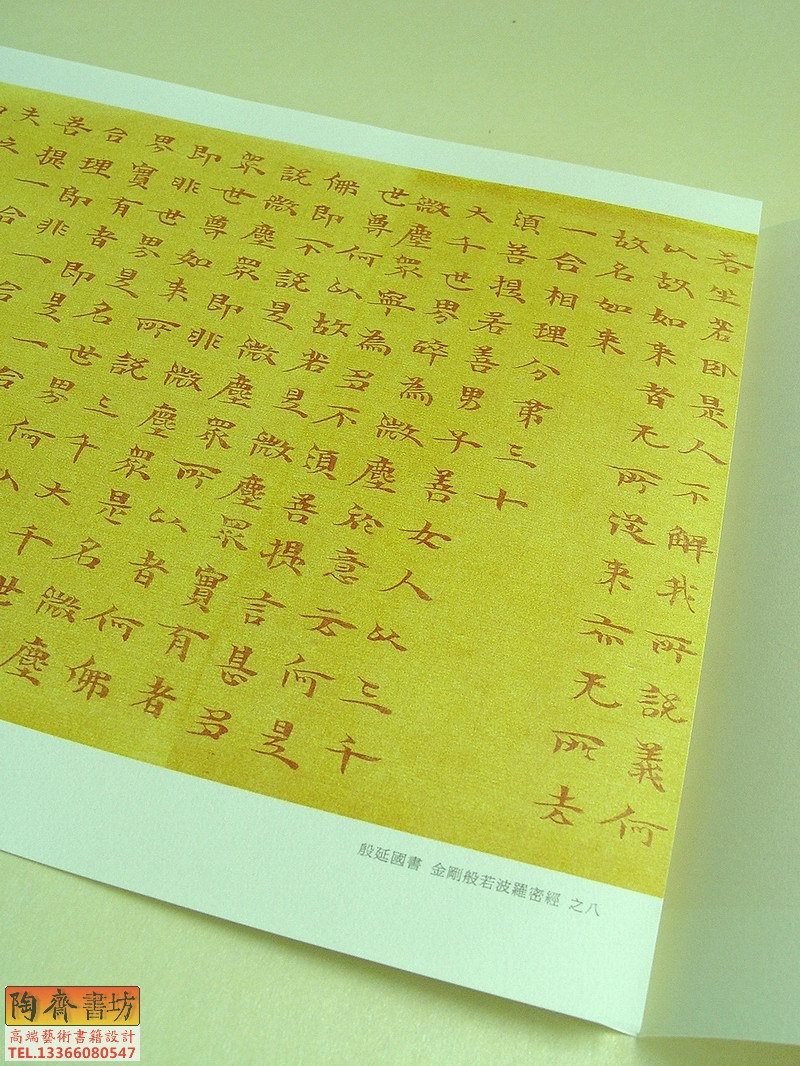 若坐若卧是人不解我所說義何
以故如来者无所從来亦无所去
故名如来
一合相理分第三十
須菩提若善男子善女人以三千
大千世界碎為微塵於意云何是
微塵衆寧為多不須菩提言甚多
世尊何以故若是微塵衆實有者
佛即不說是微塵衆所以者何佛
說微塵衆即非微塵衆是名微塵
衆世尊如来所說三千大千世
即非世界是名世界何
界實有者即是一合
合理即非一合
菩提一合
夫之
殷延國書 金剛般若波羅密經 之八
陶齋書坊
高端藝術書籍設計
TEL.13366080547